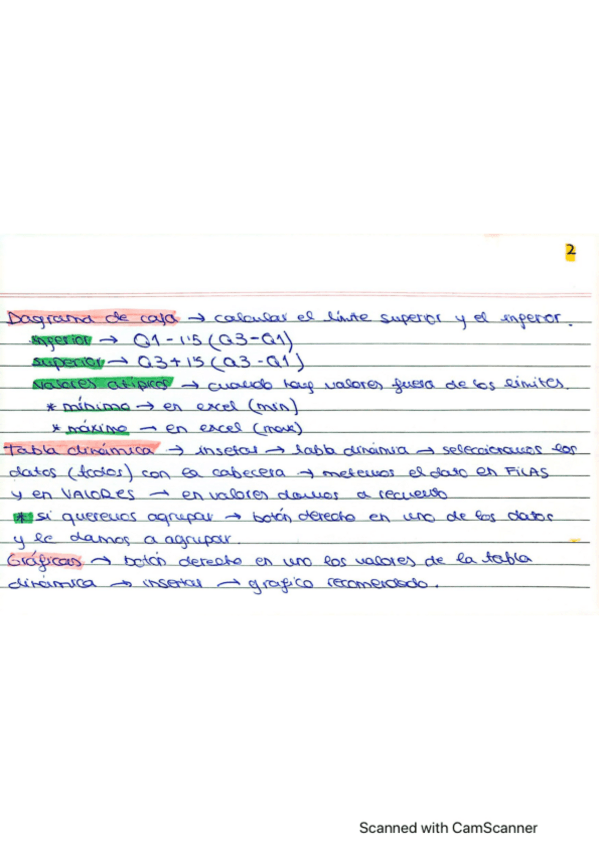 2
Dagrama de caja → calcular el límite superior y el inferior.
inferior → Q1 - 1'5 (Q3-Q1)
superior → Q3 + 1'5 (Q3-Q1)
valores atípicos → cuando hay valores fuera de los límites.
* mínimo → en excel (min)
* máximo → en excel (max)
Tabla dinámica → insertar → tabla dinámica → seleccionamos los
datos (todos) con la cabecera → metemos el dato en FILAS
y en VALORES → en valores damos a recuento
* si queremos agrupar → botón derecho en uno de los datos
y le damos a agrupar.
Gráficas → botón derecho en uno los valores de la tabla
dinámica → insertar → grafico recomendado.
Scanned with CamScanner